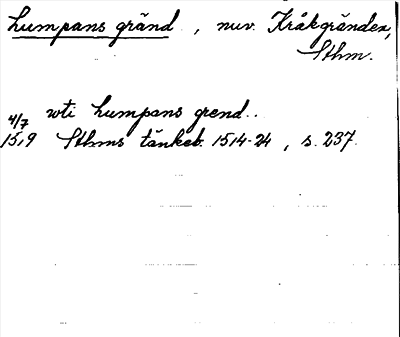 Lumpans gränd , nuv. Kråkgränden,
Sthm.
wti Lumpans grend..
4/7
1519 Sthms tänkeb. 1514-24 , s. 237.